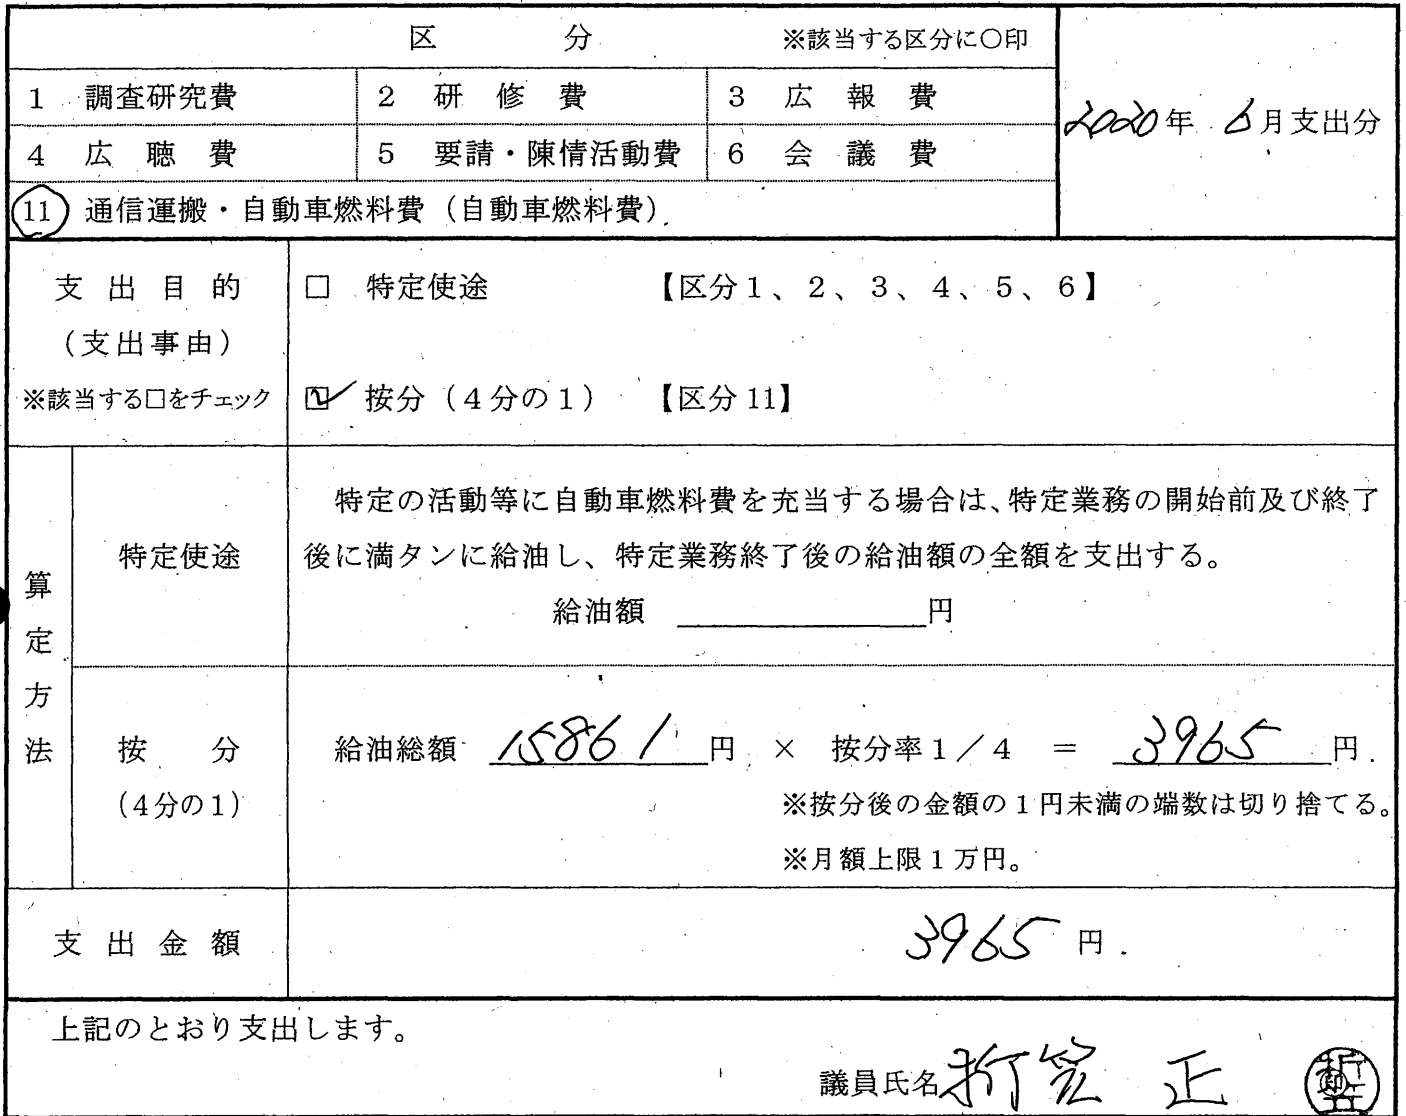 区 分 ※該当する区分に○印
1 調査研究費 2 研修費 3 広報費
2020年 6月支出分
4 広聴費 5 要請・陳情活動費 6 会議費
11 通信運搬・自動車燃料費(自動車燃料費)
支出目的
(支出事由)
※該当する□をチェック
□ 特定使途 【区分1、2、3、4、5、6】
☑ 按分(4分の1) 【区分11】
算定方法
特定使途
特定の活動等に自動車燃料費を充当する場合は、特定業務の開始前及び終了
後に満タンに給油し、特定業務終了後の給油額の全額を支出する。
給油額 円
按分
(4分の1)
給油総額 15861円 × 按分率1/4 = 3965円
※按分後の金額の1円未満の端数は切り捨てる。
※月額上限1万円。
支出金額 3965円
上記のとおり支出します。
議員氏名 折笠 正